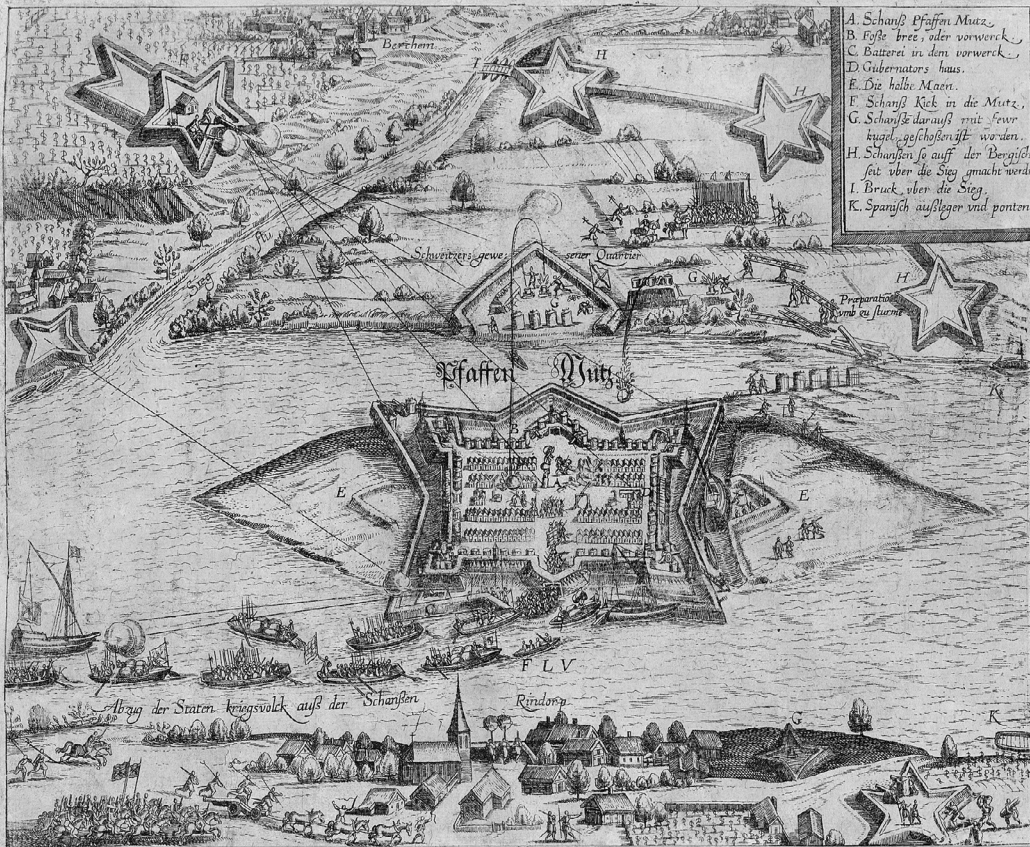 A. Schanß Pfaffen Mutz.
B. Foße bree, oder vorwerck
C. Batterei in dem vorwerck
D. Gubernators haus.
E. Die halbe Maen.
F. Schanß Kick in die Mutz.
G. Schanße darauß mit fewr
kugel geschoßen ist worden.
H. Schanßen so auff der Bergisch
seit vber die Sieg gmacht werd
I. Bruck vber die Sieg.
K. Spanisch außleger vnd ponten
Berchem
F
I
H
H
Sieg Flu
Schweitzers gewe
sener Quartier
G
G
H
Præparatio
vmb zu sturme
K
Pfaffen Mutz
B
A
D
E
E
C
F L V
Abzug der Staten kriegsvolck auß der Schanßen
Rindorp
G
K